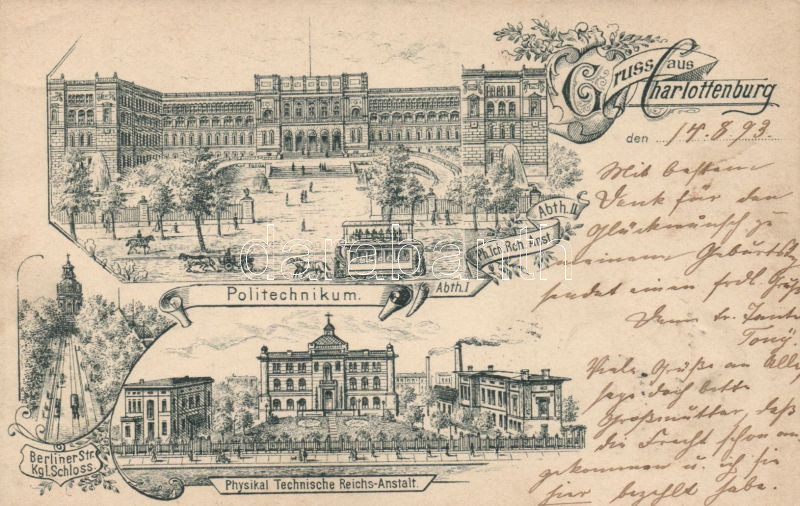 Gruss aus
Charlottenburg
den 14.8.93.
Mit bestem
Dank für den
Glückwunsch zu
meinem Geburtstag
sendet einen frdl. Gruß
Tante
Tony.
Viele Grüße an Alle,
sage doch bitte
Großmutter, daß
die Fracht schon an-
gekommen u. ich sie
hier bezahlt habe.
Abth. II
Ph. Tch. Rch. Anst.
Abth. I
Politechnikum.
Berliner Str.
Kgl. Schloss
Physikal Technische Reichs-Anstalt.
darabanth